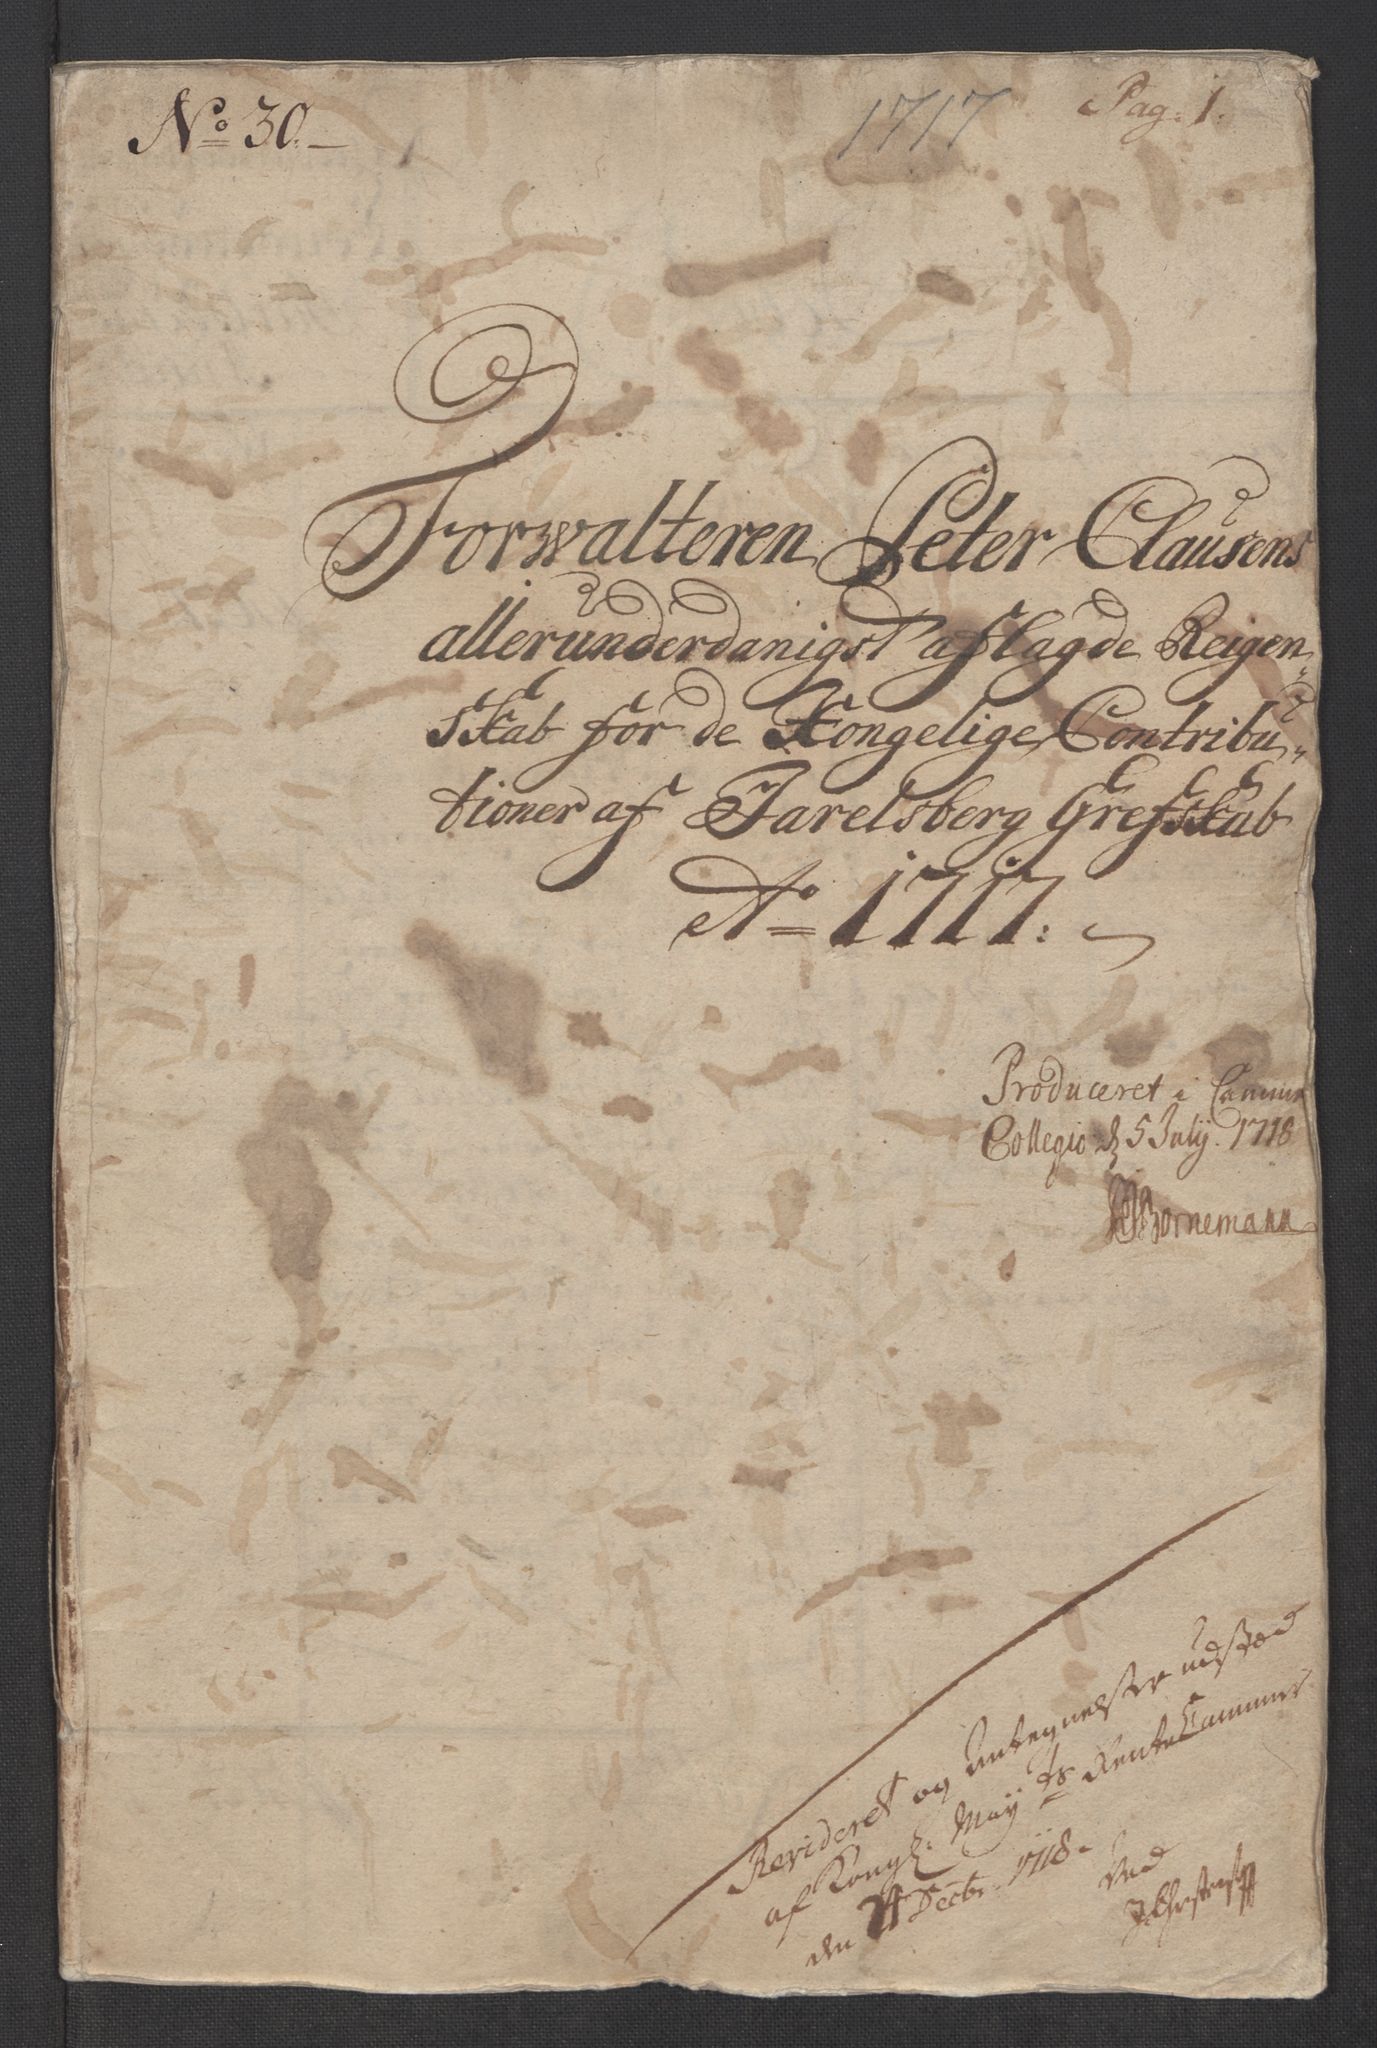 No 30.
1717
Pag: 1.
Forwalteren Peter Clausens
allerunderdanigst aflagde Reigen„
skab for de Kongelige Contribu„
tioner af Jarelsberg Grefskab
Ao 1717:
Produceret i Cammer
Collegio d 5 Julij. 1718
Bornemann
Revideret og Antegnelser udsted
af Kongl: Maÿts RenteCammer
den Decbr. 1718.
Ved